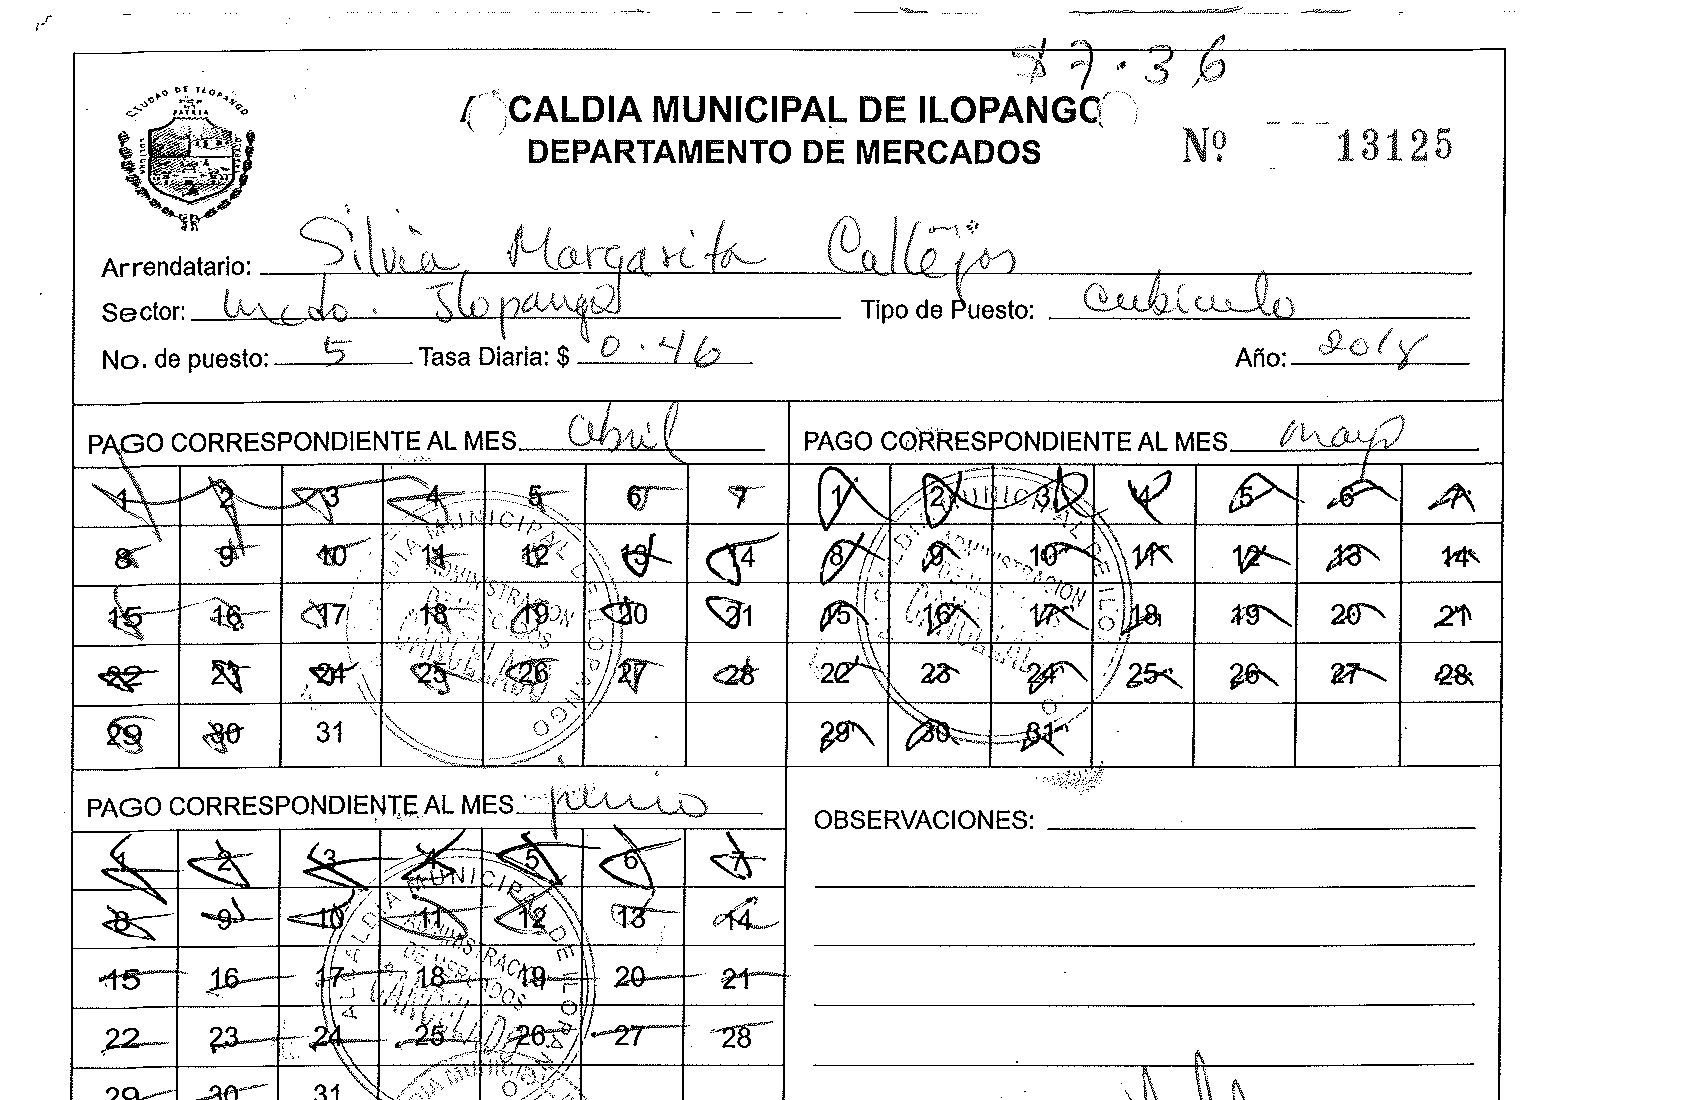 $7.36
CIUDAD DE ILOPANGO
CALDIA MUNICIPAL DE ILOPANGO
DEPARTAMENTO DE MERCADOS
Nº 13125
Arrendatario: Silvia Margarita Callejos
Sector: Mcdo. Ilopango Tipo de Puesto: cubiculo
No. de puesto: 5 Tasa Diaria: $ 0.46 Año: 2018
PAGO CORRESPONDIENTE AL MES abril
1 2 3 4 5 6 7
8 9 10 11 12 13 14
15 16 17 18 19 20 21
22 23 24 25 26 27 28
29 30 31
PAGO CORRESPONDIENTE AL MES mayo
1 2 3 4 5 6 7
8 9 10 11 12 13 14
15 16 17 18 19 20 21
22 23 24 25 26 27 28
29 30 31
PAGO CORRESPONDIENTE AL MES junio
1 2 3 4 5 6 7
8 9 10 11 12 13 14
15 16 17 18 19 20 21
22 23 24 25 26 27 28
29 30 31
OBSERVACIONES:
ALCALDIA MUNICIPAL DE ILOPANGO
ADMINISTRACION
DE MERCADOS
CANCELADO